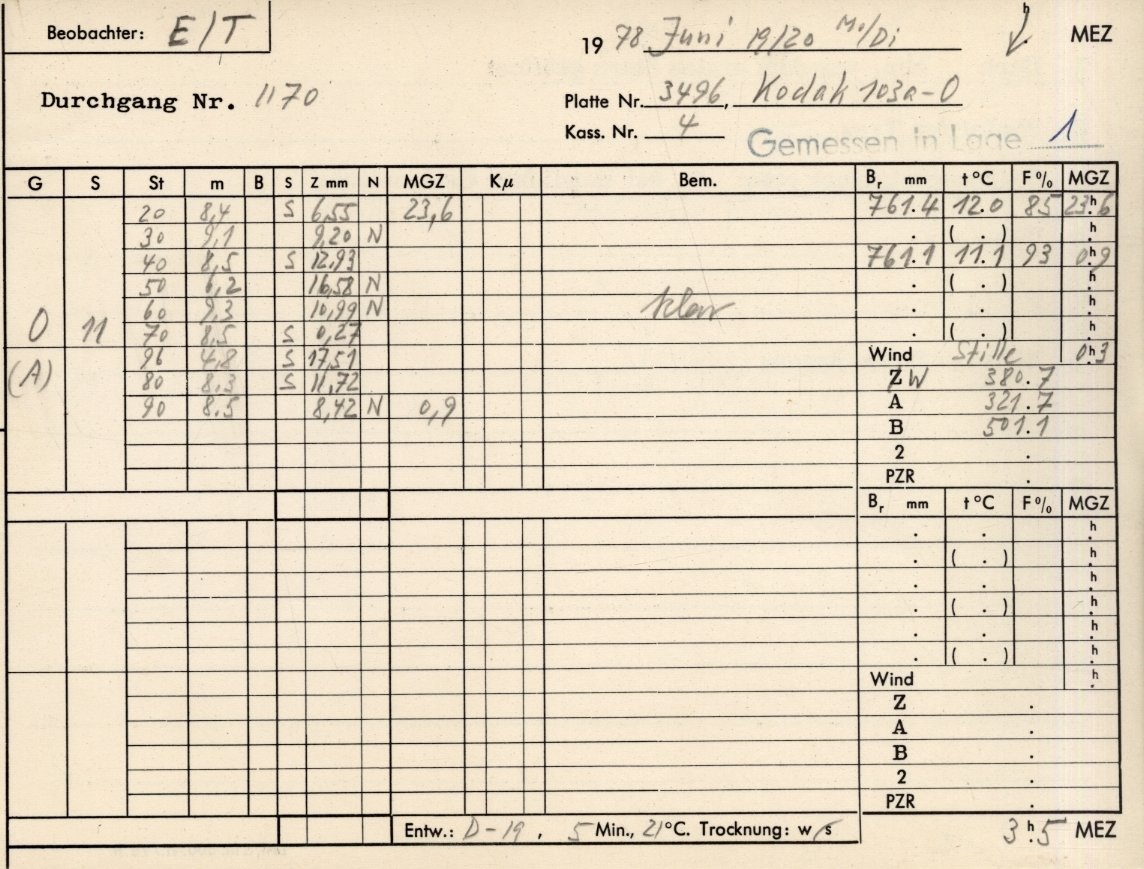 Beobachter: E/T
19 78 Juni 19/20 Mo/Di h MEZ
Durchgang Nr. 1170
Platte Nr. 3496, Kodak 103a-O
Kass. Nr. 4
Gemessen in Lage 1
G S St m B S Z mm N MGZ Kμ Bem. Br mm t °C F % MGZ
20 8,4 S 6,55 23,6 761.4 12.0 85 23h6
30 9,1 9,20 N . ( . ) h
40 8,5 S 12,93 761.1 11.1 93 0h9
50 6,2 16,58 N . ( . ) h
60 9,3 10,99 N klar . . h
O 11 70 8,5 S 0,27 . ( . ) h
96 4,8 S 17,51 Wind Stille 0h3
(A) 80 8,3 S 11,72 Z W 380.7
90 8.5 8,42 N 0,9 A 321.7
B 501.1
2 .
PZR .
Br mm t °C F % MGZ
. . h
. ( . ) h
. . h
. ( . ) h
. . h
. ( . ) h
Wind h
Z .
A .
B .
2 .
PZR .
Entw.: D-19, 5 Min., 21°C. Trocknung: w/s
3h.5 MEZ